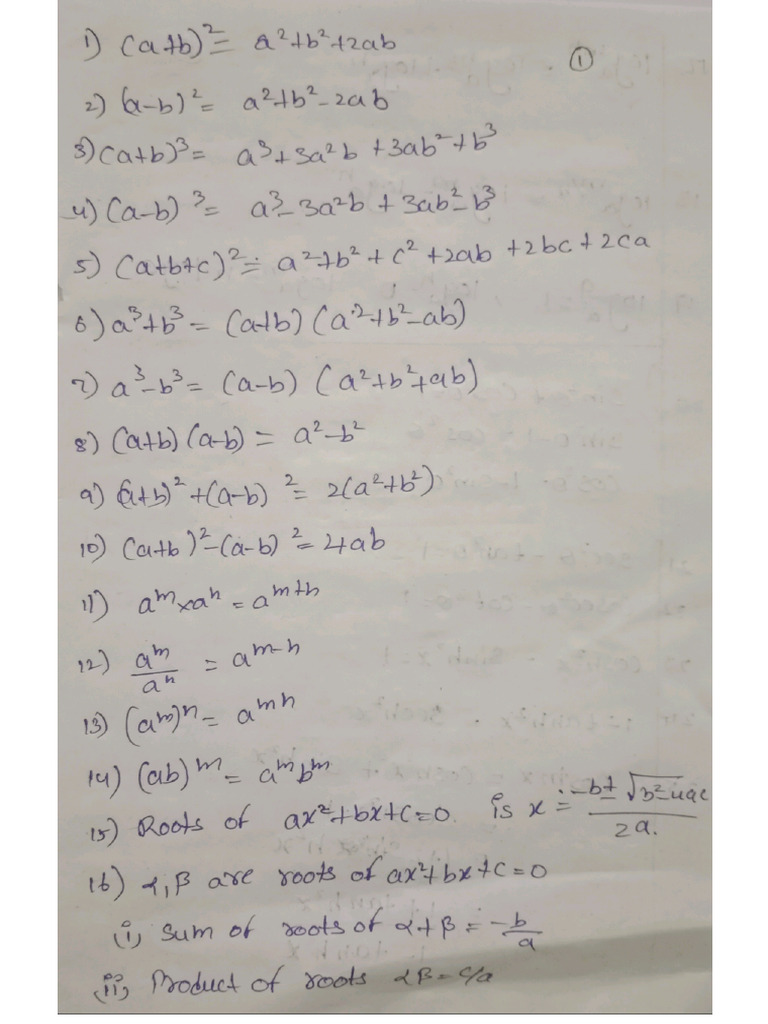 ①
1) (a+b)² = a²+b²+2ab
2) (a-b)² = a²+b²-2ab
3) (a+b)³ = a³+3a²b+3ab²+b³
4) (a-b)³ = a³-3a²b+3ab²-b³
5) (a+b+c)² = a²+b²+c²+2ab+2bc+2ca
6) a³+b³ = (a+b) (a²+b²-ab)
7) a³-b³ = (a-b) (a²+b²+ab)
8) (a+b) (a-b) = a²-b²
9) (a+b)²+(a-b)² = 2(a²+b²)
10) (a+b)²-(a-b)² = 4ab
11) aᵐ×aⁿ = aᵐ⁺ⁿ
12) aᵐ/aⁿ = aᵐ⁻ⁿ
13) (aᵐ)ⁿ = aᵐⁿ
14) (ab)ᵐ = aᵐbᵐ
15) Roots of ax²+bx+c=0. is x = -b±√b²-4ac/2a.
16) α,β are roots of ax²+bx+c=0
(i) Sum of roots of α+β = -b/a
(ii) Product of roots αβ = c/a